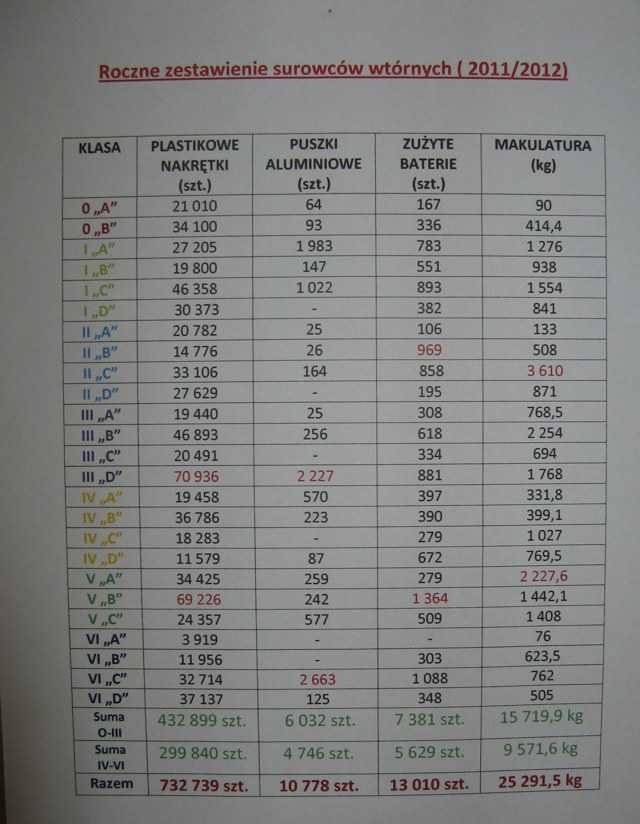 Roczne zestawienie surowców wtórnych ( 2011/2012)
KLASA PLASTIKOWE NAKRĘTKI (szt.) PUSZKI ALUMINIOWE (szt.) ZUŻYTE BATERIE (szt.) MAKULATURA (kg)
0 „A” 21 010 64 167 90
0 „B” 34 100 93 336 414,4
I „A” 27 205 1 983 783 1 276
I „B” 19 800 147 551 938
I „C” 46 358 1 022 893 1 554
I „D” 30 373 - 382 841
II „A” 20 782 25 106 133
II „B” 14 776 26 969 508
II „C” 33 106 164 858 3 610
II „D” 27 629 - 195 871
III „A” 19 440 25 308 768,5
III „B” 46 893 256 618 2 254
III „C” 20 491 - 334 694
III „D” 70 936 2 227 881 1 768
IV „A” 19 458 570 397 331,8
IV „B” 36 786 223 390 399,1
IV „C” 18 283 - 279 1 027
IV „D” 11 579 87 672 769,5
V „A” 34 425 259 279 2 227,6
V „B” 69 226 242 1 364 1 442,1
V „C” 24 357 577 509 1 408
VI „A” 3 919 - - 76
VI „B” 11 956 - 303 623,5
VI „C” 32 714 2 663 1 088 762
VI „D” 37 137 125 348 505
Suma O-III 432 899 szt. 6 032 szt. 7 381 szt. 15 719,9 kg
Suma IV-VI 299 840 szt. 4 746 szt. 5 629 szt. 9 571,6 kg
Razem 732 739 szt. 10 778 szt. 13 010 szt. 25 291,5 kg